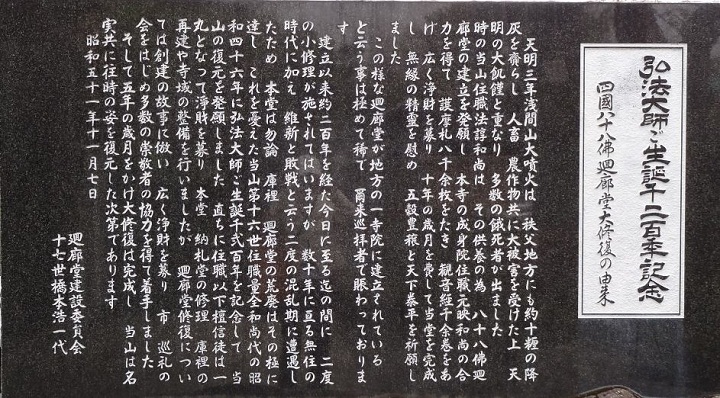 弘法大師ご生誕千二百年記念
四國八十八佛廻廊堂大修復の由来
天明三年浅間山大噴火は 秩父地方にも約十糎の降
灰を齎らし 人畜 農作物共に大被害を受けた上 天
明の大飢饉と重なり 多数の餓死者が出ました
時の当山住職法諄和尚は その供養の為 八十八佛廻
廊堂の建立を発願し 本寺の成身院住職元映和尚の合
力を得て 護摩札八千余枚をたき 観音経千余巻をあ
げ 広く浄財を募り 十年の歳月を費して当堂を完成
し 無縁の精霊を慰め 五穀豊穣と天下泰平を祈願し
ました
この様な廻廊堂が地方の一寺院に建立されている
と云う事は極めて稀で 爾来巡拝者で賑わっておりま
す
建立以来約二百年を経た今日に至る迄の間に 二度
の小修理が施されてはいますが 数十年に亘る無住の
時代に加え 維新と敗戦と云う二度の混乱期に遭遇し
たため 本堂は勿論 庫裡 廻廊堂の荒廃はその極に
達し これを憂えた当山第十六世住職量全和尚代の昭
和四十六年に弘法大師ご生誕千弐百年を記念して 当
山の復元を発願しました 直ちに住職以下檀信徒は一
丸となって浄財を募り 本堂 納札堂の修理 庫裡の
再建や寺域の整備を行いましたが 廻廊堂修復につい
ては創建の故事に倣い 広く浄財を募り 市 巡礼の
会をはじめ多数の崇敬者の協力を得て着手しました
そして五年の歳月をかけ大修復は完成し 当山は名
実共に往時の姿を復元した次第であります
昭和五十一年十一月七日
廻廊堂建設委員会
十七世橋本浩一代